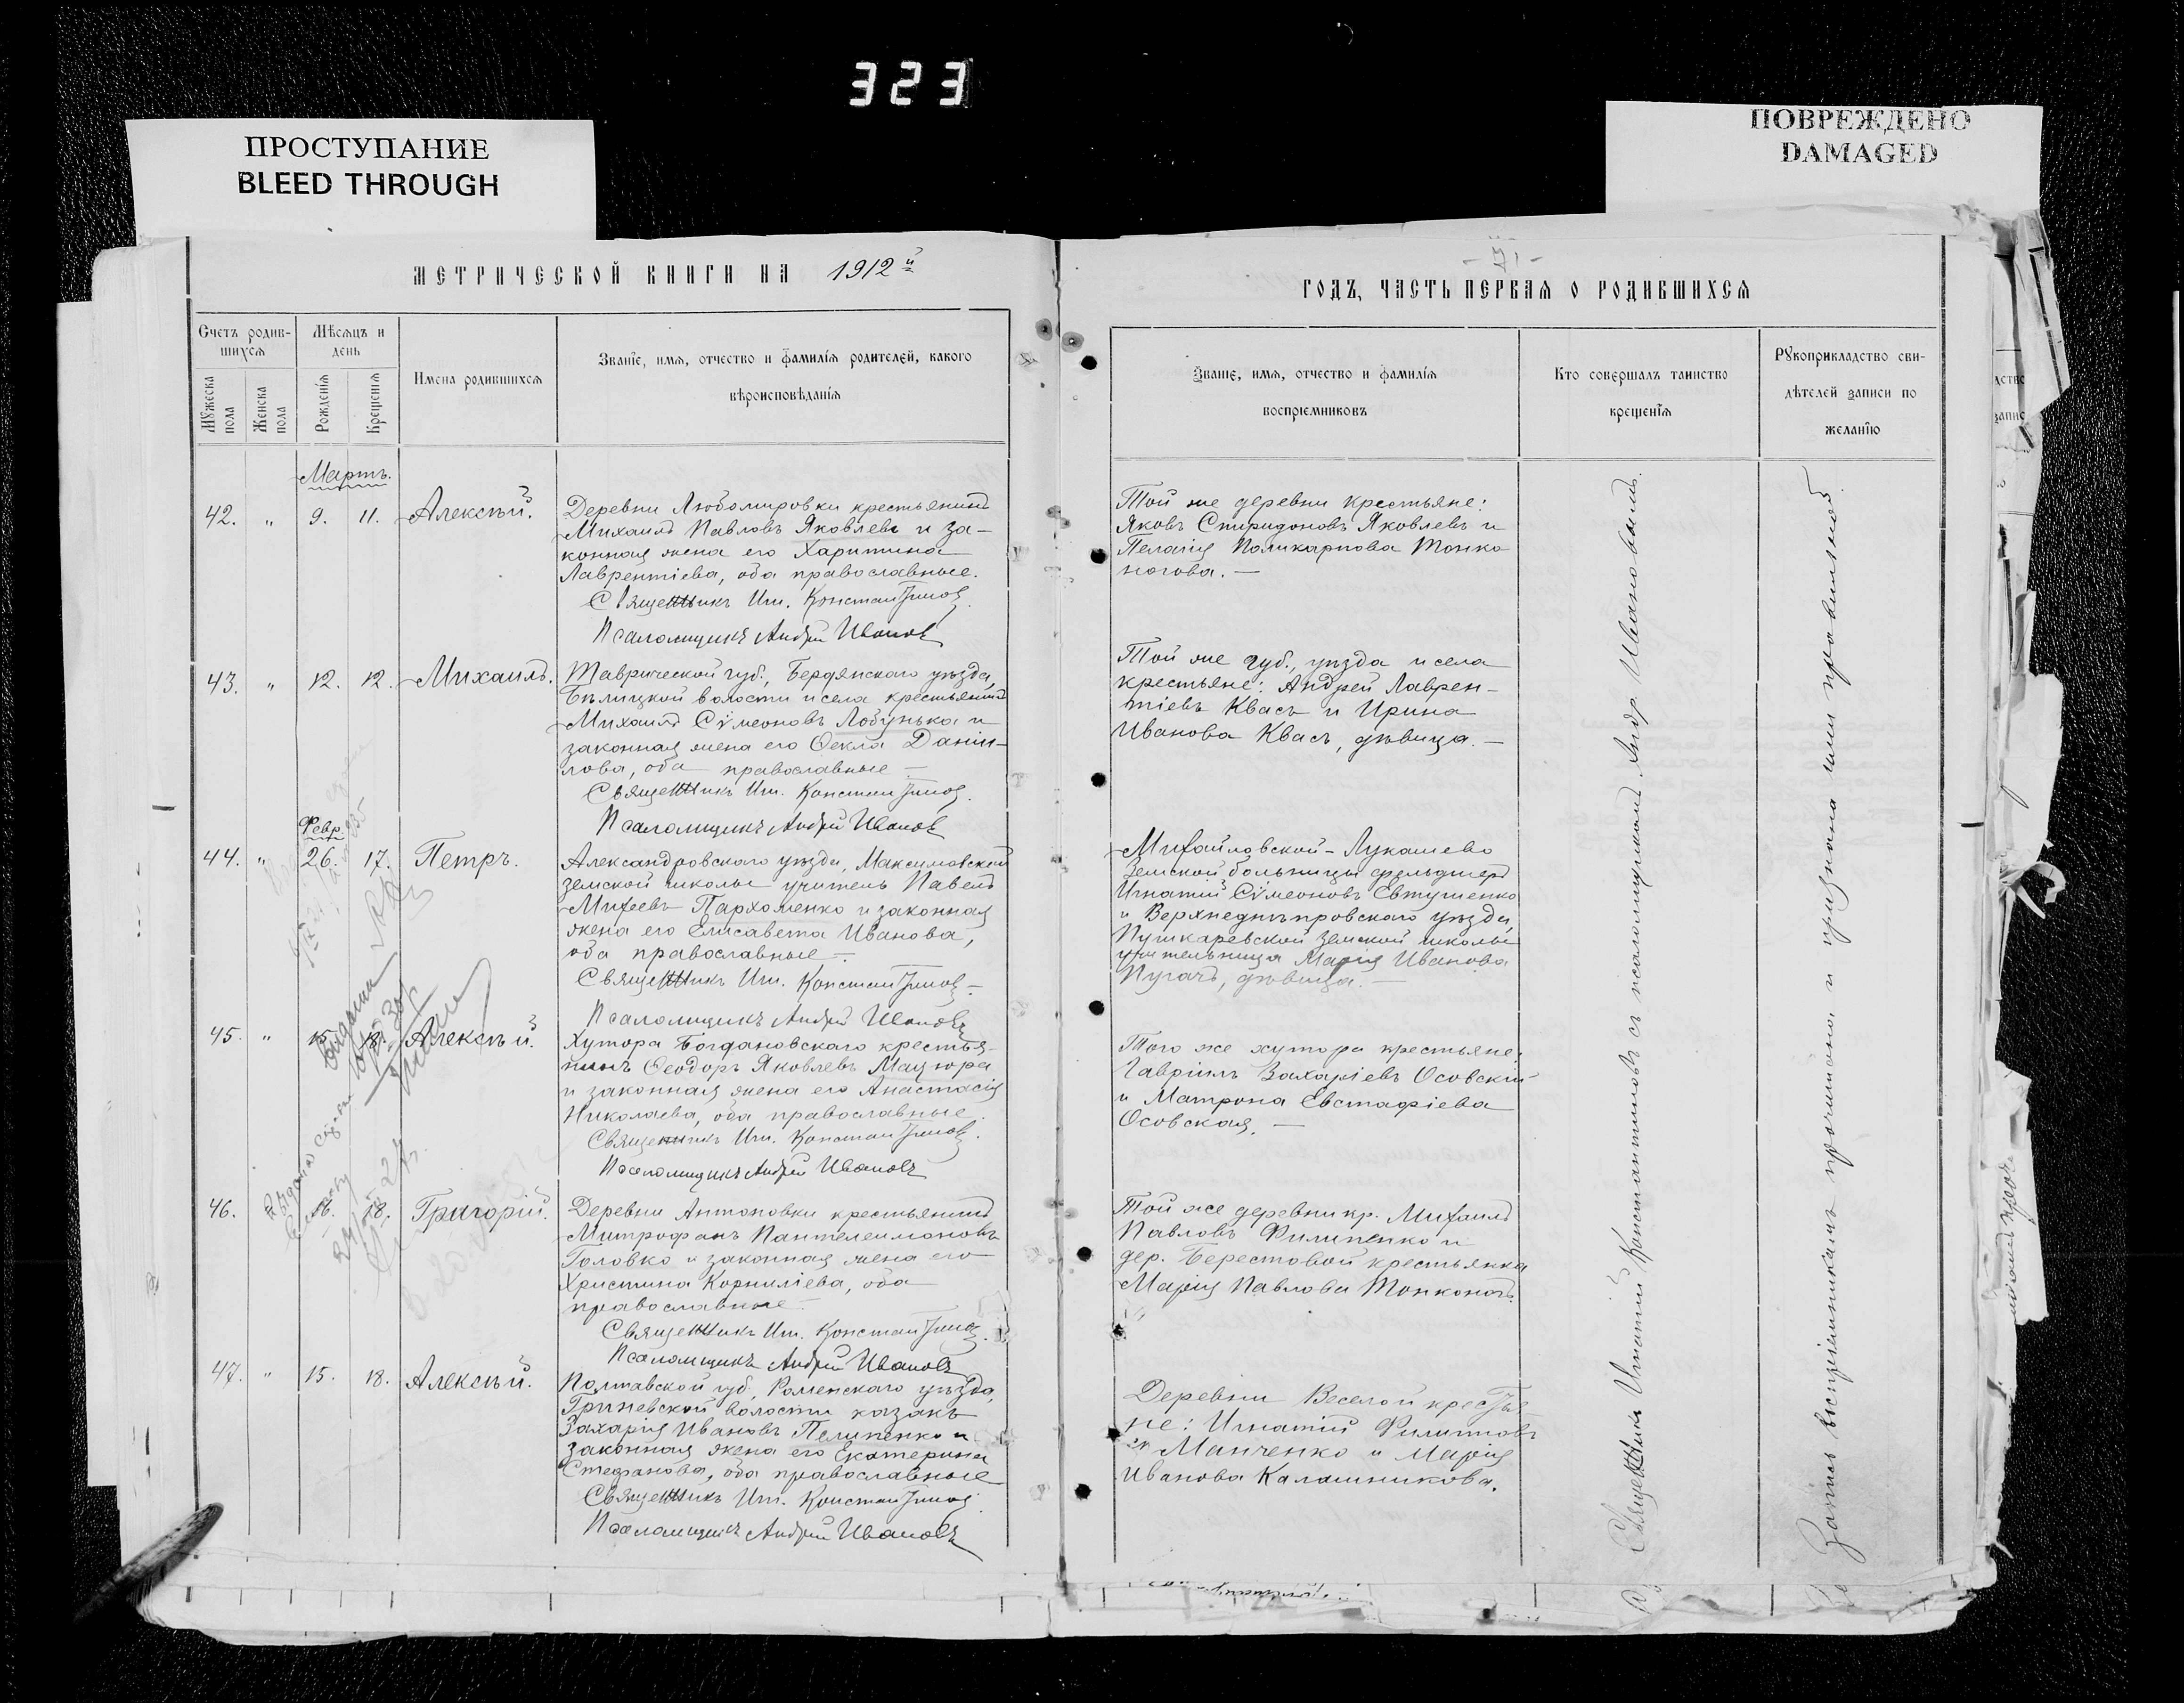 323
ПРОСТУПАНИЕ
BLEED THROUGH
ПОВРЕЖДЕНО
DAMAGED
МЕТРИЧЕСКОЙ КНИГИ НА 1912й
Счетъ родив-
шихся
Мѣсяцъ и
день
Мужеска
пола
Женска
пола
Рожденія
Крещенія
Имена родившихся
Званіе, имя, отчество и фамилія родителей, какого
вѣроисповѣданія
Мартъ.
42. " 9. 11. Алексѣй.
Деревни Любомировки крестьянинъ
Михаилъ Павловъ Яковлевъ и за-
конная жена его Харитина
Лаврентіева, оба православные.
Священникъ Игн. Константинов
Псаломщикъ Андрей Ивановъ
43. " 12. 12. Михаилъ.
Таврической губ., Бердянскаго уѣзда,
Бѣлицкой волости и села крестьянинъ
Михаилъ Сѵмеоновъ Лобунька и
законная жена его Ѳекла Даніи-
лова, оба православные —
Священникъ Игн. Константинов
Псаломщикъ Андрей Ивановъ
Февр.
44. " 26. 17. Петръ.
Александровскаго уѣзда, Максимовской
земской школы учитель Павелъ
Михеевъ Пархоменко и законная
жена его Елисавета Иванова,
оба православные —
Священникъ Игн. Константинов —
Псаломщикъ Андрей Ивановъ
45. " 15. 18. Алексѣй.
Хутора Богдановскаго крестья-
нинъ Ѳеодоръ Яковлевъ Мацюра
и законная жена его Анастасія
Николаева, оба православные.
Священникъ Игн. Константинов.
Псаломщикъ Андрей Ивановъ
46. 16. 18. Григорій.
Деревни Антоновки крестьянинъ
Митрофанъ Пантелеимоновъ
Головко и законная жена его
Христина Корниліева, оба
православные
Священникъ Игн. Константинов.
Псаломщикъ Андрей Ивановъ
47. " 15. 18. Алексѣй.
Полтавской губ., Роменскаго уѣзда,
Гриневской волости казакъ
Захарія Ивановъ Пелипенко и
законная жена его Екатерина
Стефанова, оба православные
Священникъ Игн. Константинов
Псаломщикъ Андрей Ивановъ
- 71 -
ГОДЪ, ЧАСТЬ ПЕРВАЯ О РОДИВШИХСЯ
Званіе, имя, отчество и фамилія
воспріемниковъ
Кто совершалъ таинство
крещенія
Рукоприкладство сви-
дѣтелей записи по
желанію
Той же деревни крестьяне:
Яковъ Спиридоновъ Яковлевъ и
Пелагія Поликарпова Тонко
ногова. —
Той же губ., уѣзда и села
крестьяне: Андрей Лаврен-
тіевъ Квасъ и Ирина
Иванова Квасъ, дѣвица. —
Михайловской-Лукашево
земской больницы фельдшеръ
Игнатій Сѵмеоновъ Евтушенко
и Верхнеднѣпровскаго уѣзда,
Пушкаревской земской школы
учительница Марія Иванова
Пугачъ, дѣвица. —
Того же хутора крестьяне:
Гавріилъ Захаріевъ Осовскій
и Матрона Евстафіева
Осовская. —
Той же деревни кр. Михаилъ
Павловъ Филипенко и
дер. Берестовой крестьянка
Марія Павлова Тонконогъ.
Деревни Веселой крестья
не: Игнатій Филипповъ
Манченко и Марія
Иванова Калашникова.
Священникъ Игнатій Константиновъ съ псаломщикомъ Андр. Ивановымъ.
Запись воспріемникамъ прочитана и признана ими правильной.